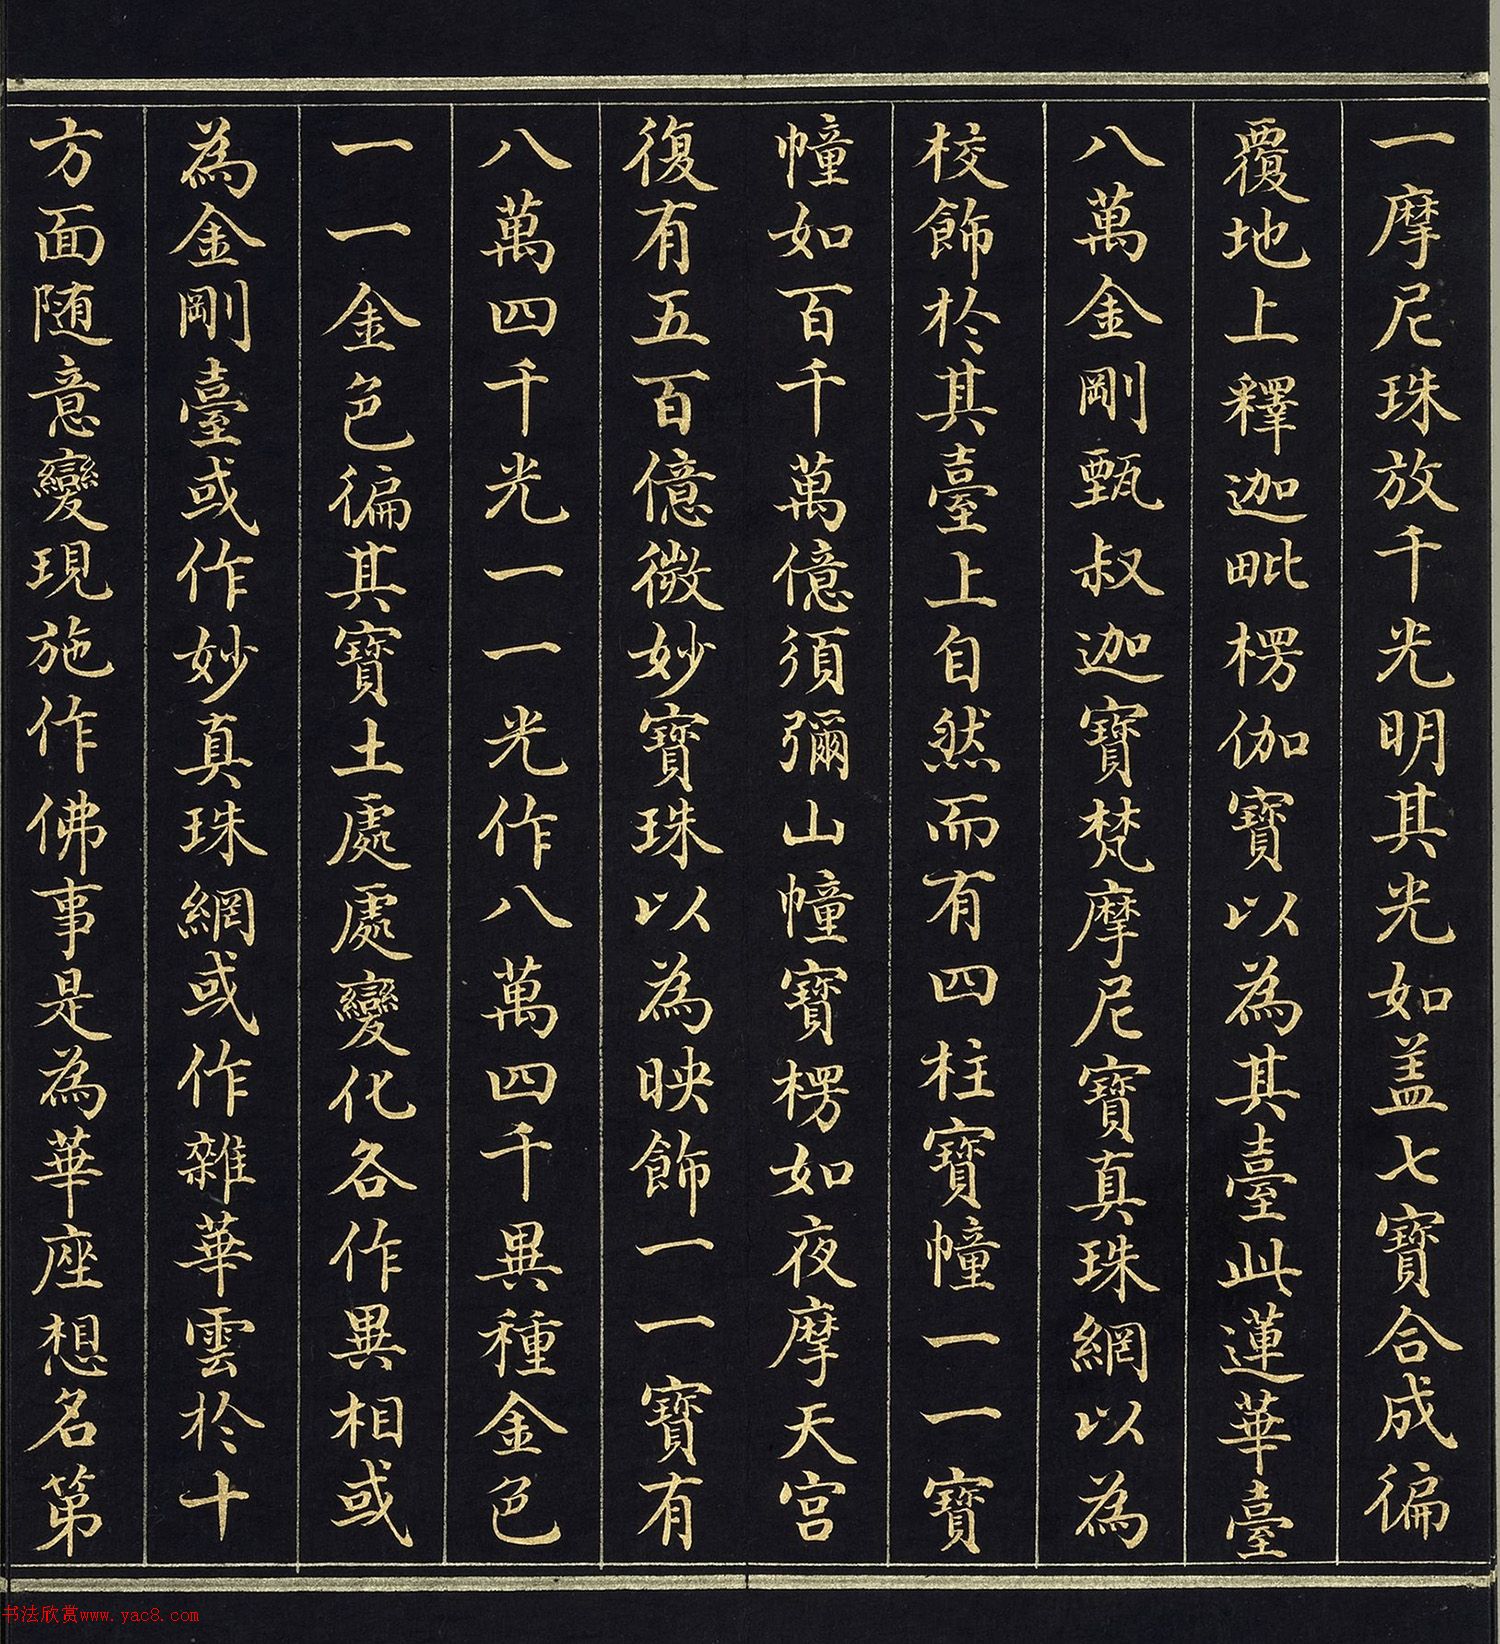 一摩尼珠放千光明其光如盖七寶合成徧
覆地上釋迦毗楞伽寶以為其臺此蓮華臺
八萬金剛甄叔迦寶梵摩尼寶真珠網以為
校飾於其臺上自然而有四柱寶幢一一寶
幢如百千萬億須彌山幢寶楞如夜摩天宮
復有五百億微妙寶珠以為映飾一一寶有
八萬四千光一一光作八萬四千異種金色
一一金色徧其寶土處處變化各作異相或
為金剛臺或作妙真珠網或作雜華雲於十
方面随意變現施作佛事是為華座想名第
书法欣赏www.yac8.com